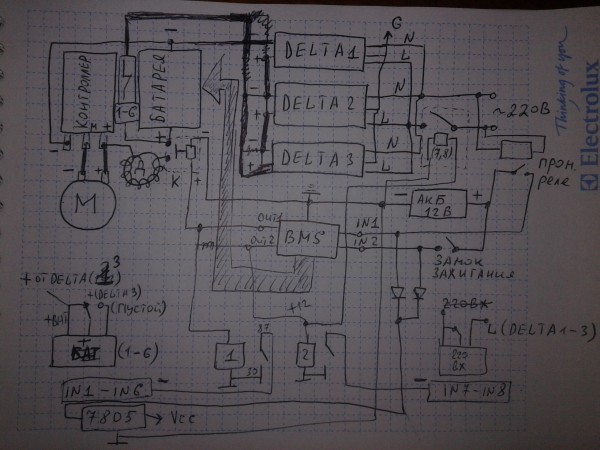 DELTA1
DELTA2
DELTA3
G
N
L
N
L
N
L
~220В
КОНТРОЛЛЕР
1-6
БАТАРЕЯ
М
Д
К
(7,8)
ПРОМ.
РЕЛЕ
- АКБ +
12В
OUT1
OUT2
BMS
IN1
IN2
ЗАМОК
ЗАЖИГАНИЯ
+12
+ОТ DELTA
3
+(DELTA3)
(ПУСТОЙ)
+ВНТ
БАТ
(1-6)
1
87
30
2
220ВХ
L(DELTA1-3)
220
ВХ
IN1-IN6
IN7-IN8
7805
Vcc
Thinking of you
Electrolux